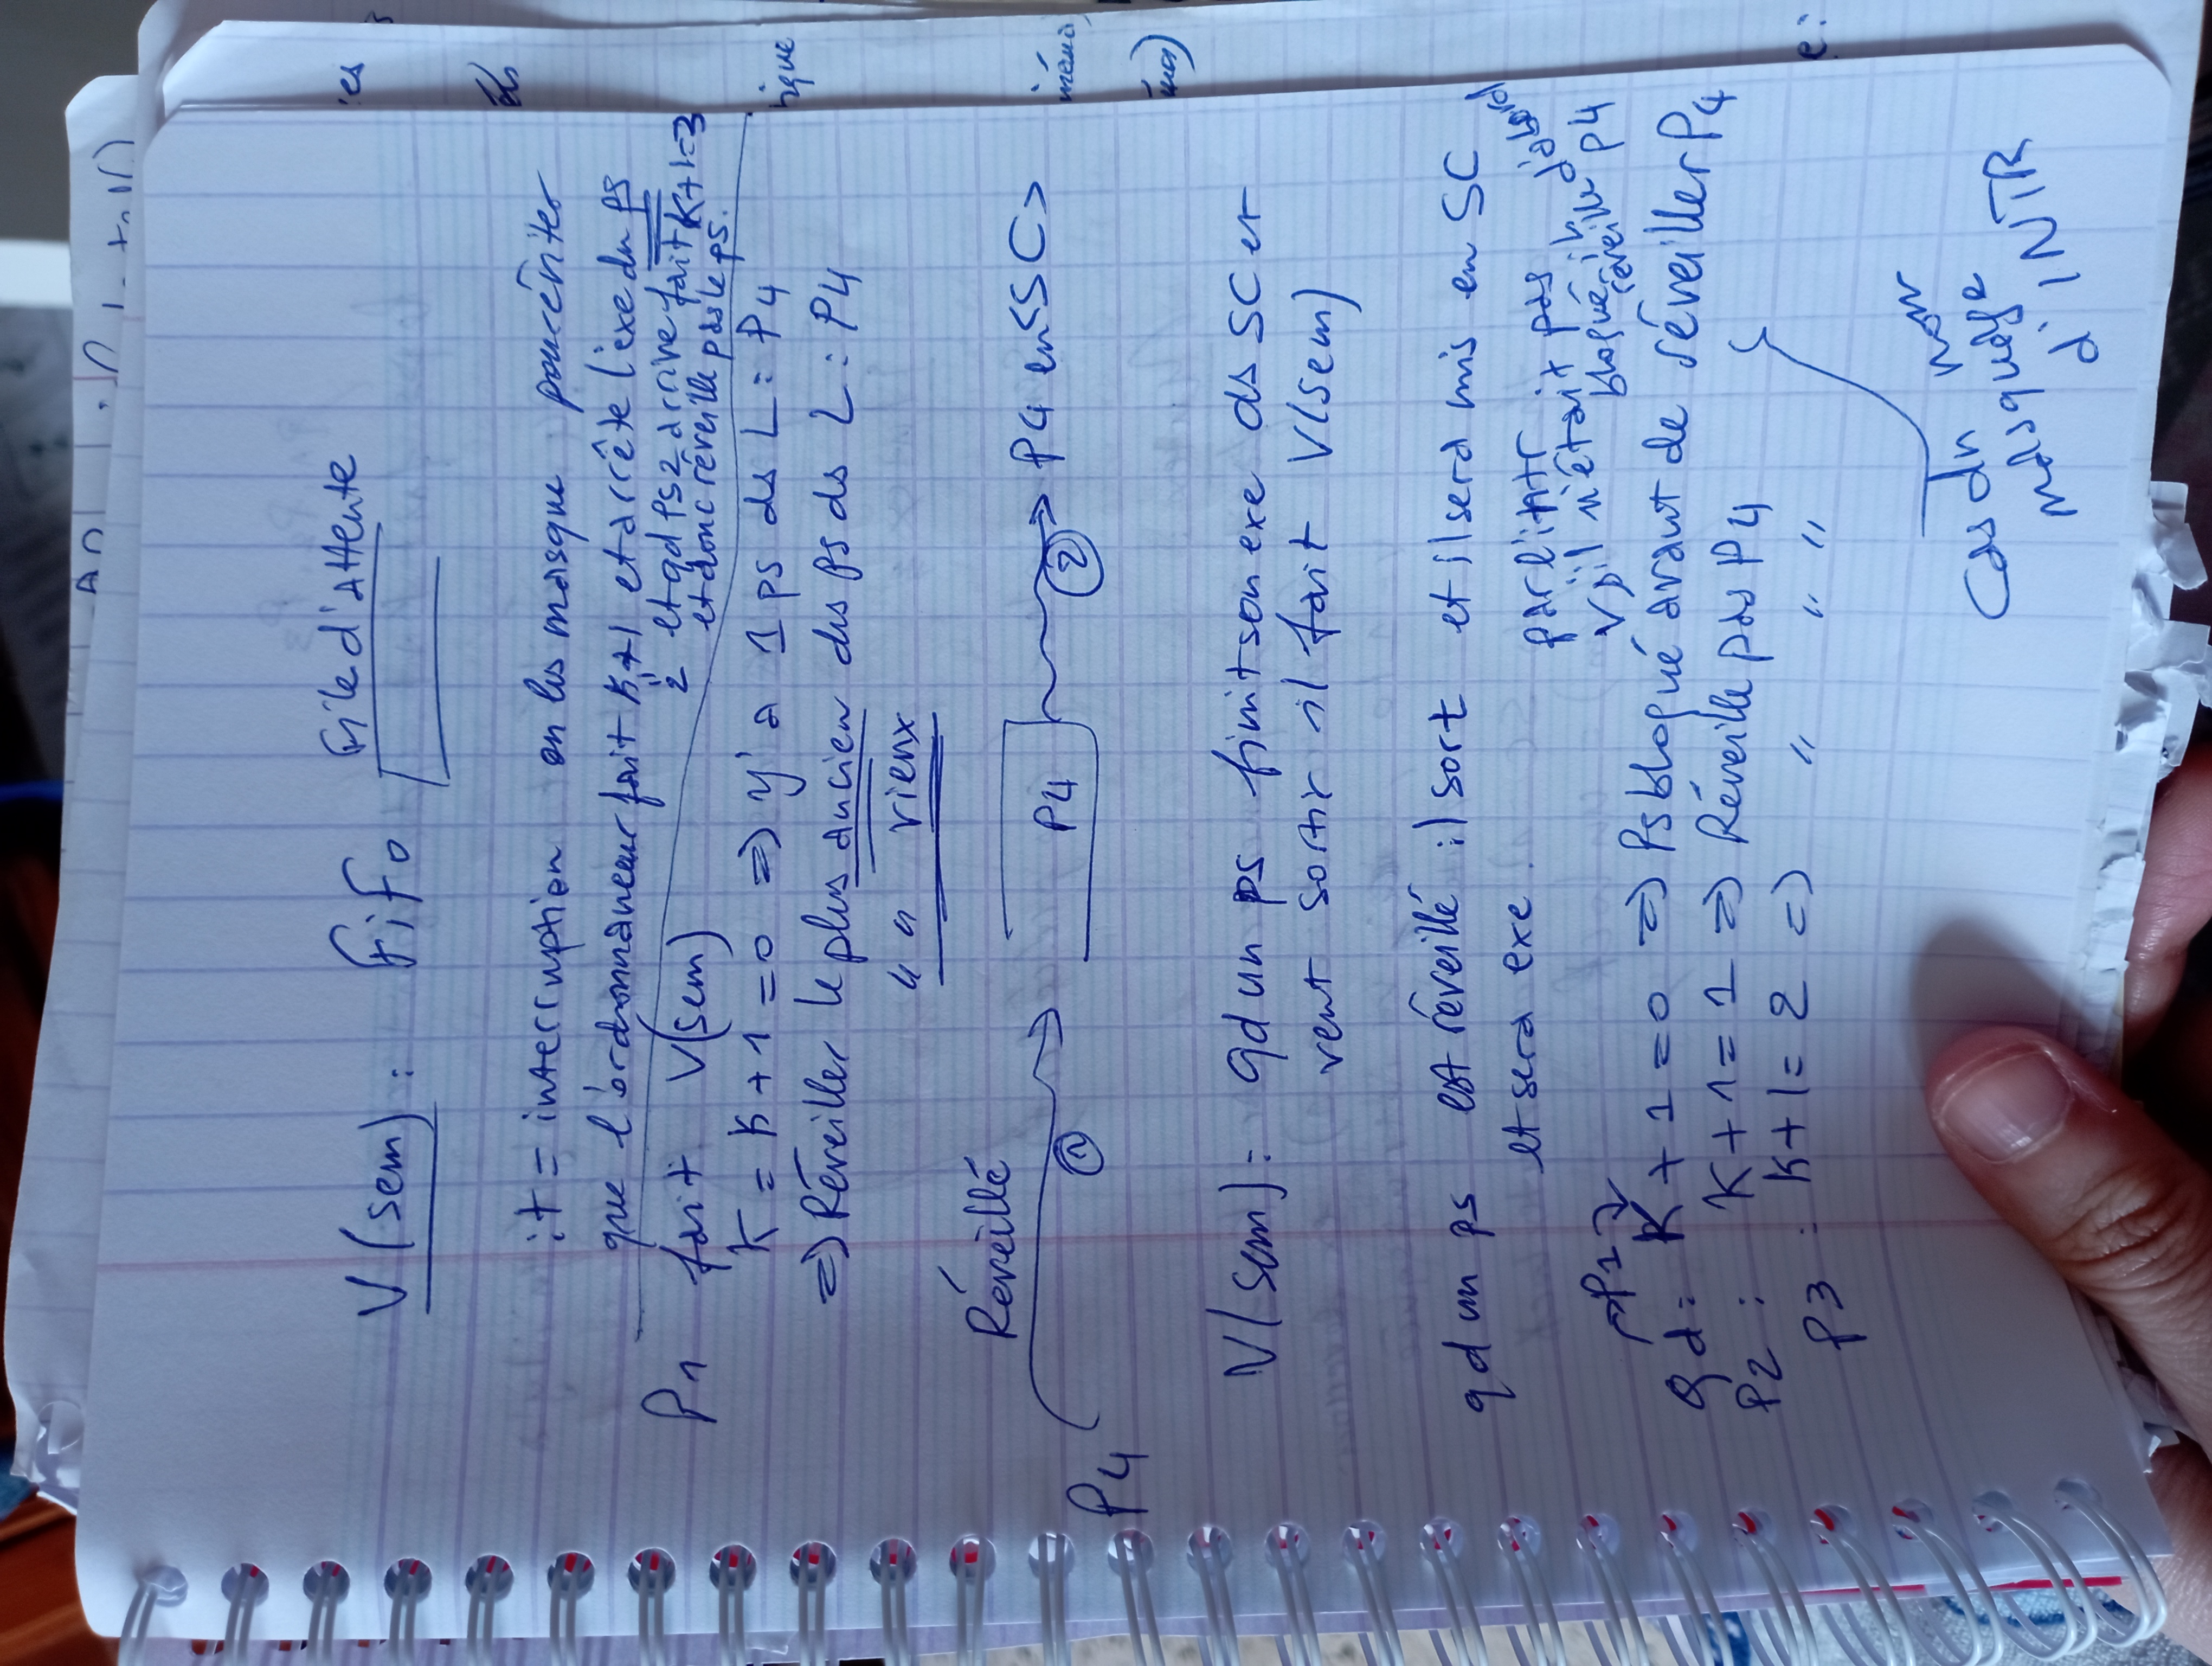 File d'Attente
V(sem) : FiFo
it = interruption on les masque pour éviter
que l'ordonnanceur fait K+1 et arrête l'exe du ps
2 et qd ps2 arrive fait K+1=3
et donc réveille pas le ps.
P1 fait V(sem)
K = K+1 = 0 => y'a 1 ps ds L : P4
=> Réveiller le plus ancien des ps ds L : P4
" " vieux
Réveillé
P4 1 P4 2 P4 en <SC>
V(sem) : qd un ps finit son exe ds SC et
veut sortir il fait V(sem)
qd un ps est réveillé il sort et il sera mis en SC
et sera exe
par l'intr
s'il n'était pas
bloqué il réveille d'abord
P4
P1
Qd : K+1 = 0 => Ps bloqué avant de réveiller P4
P2 : K+1 = 1 => Réveille pas P4
P3 : K+1 = 2 => " " "
Cas du non
masquage
d'INTR